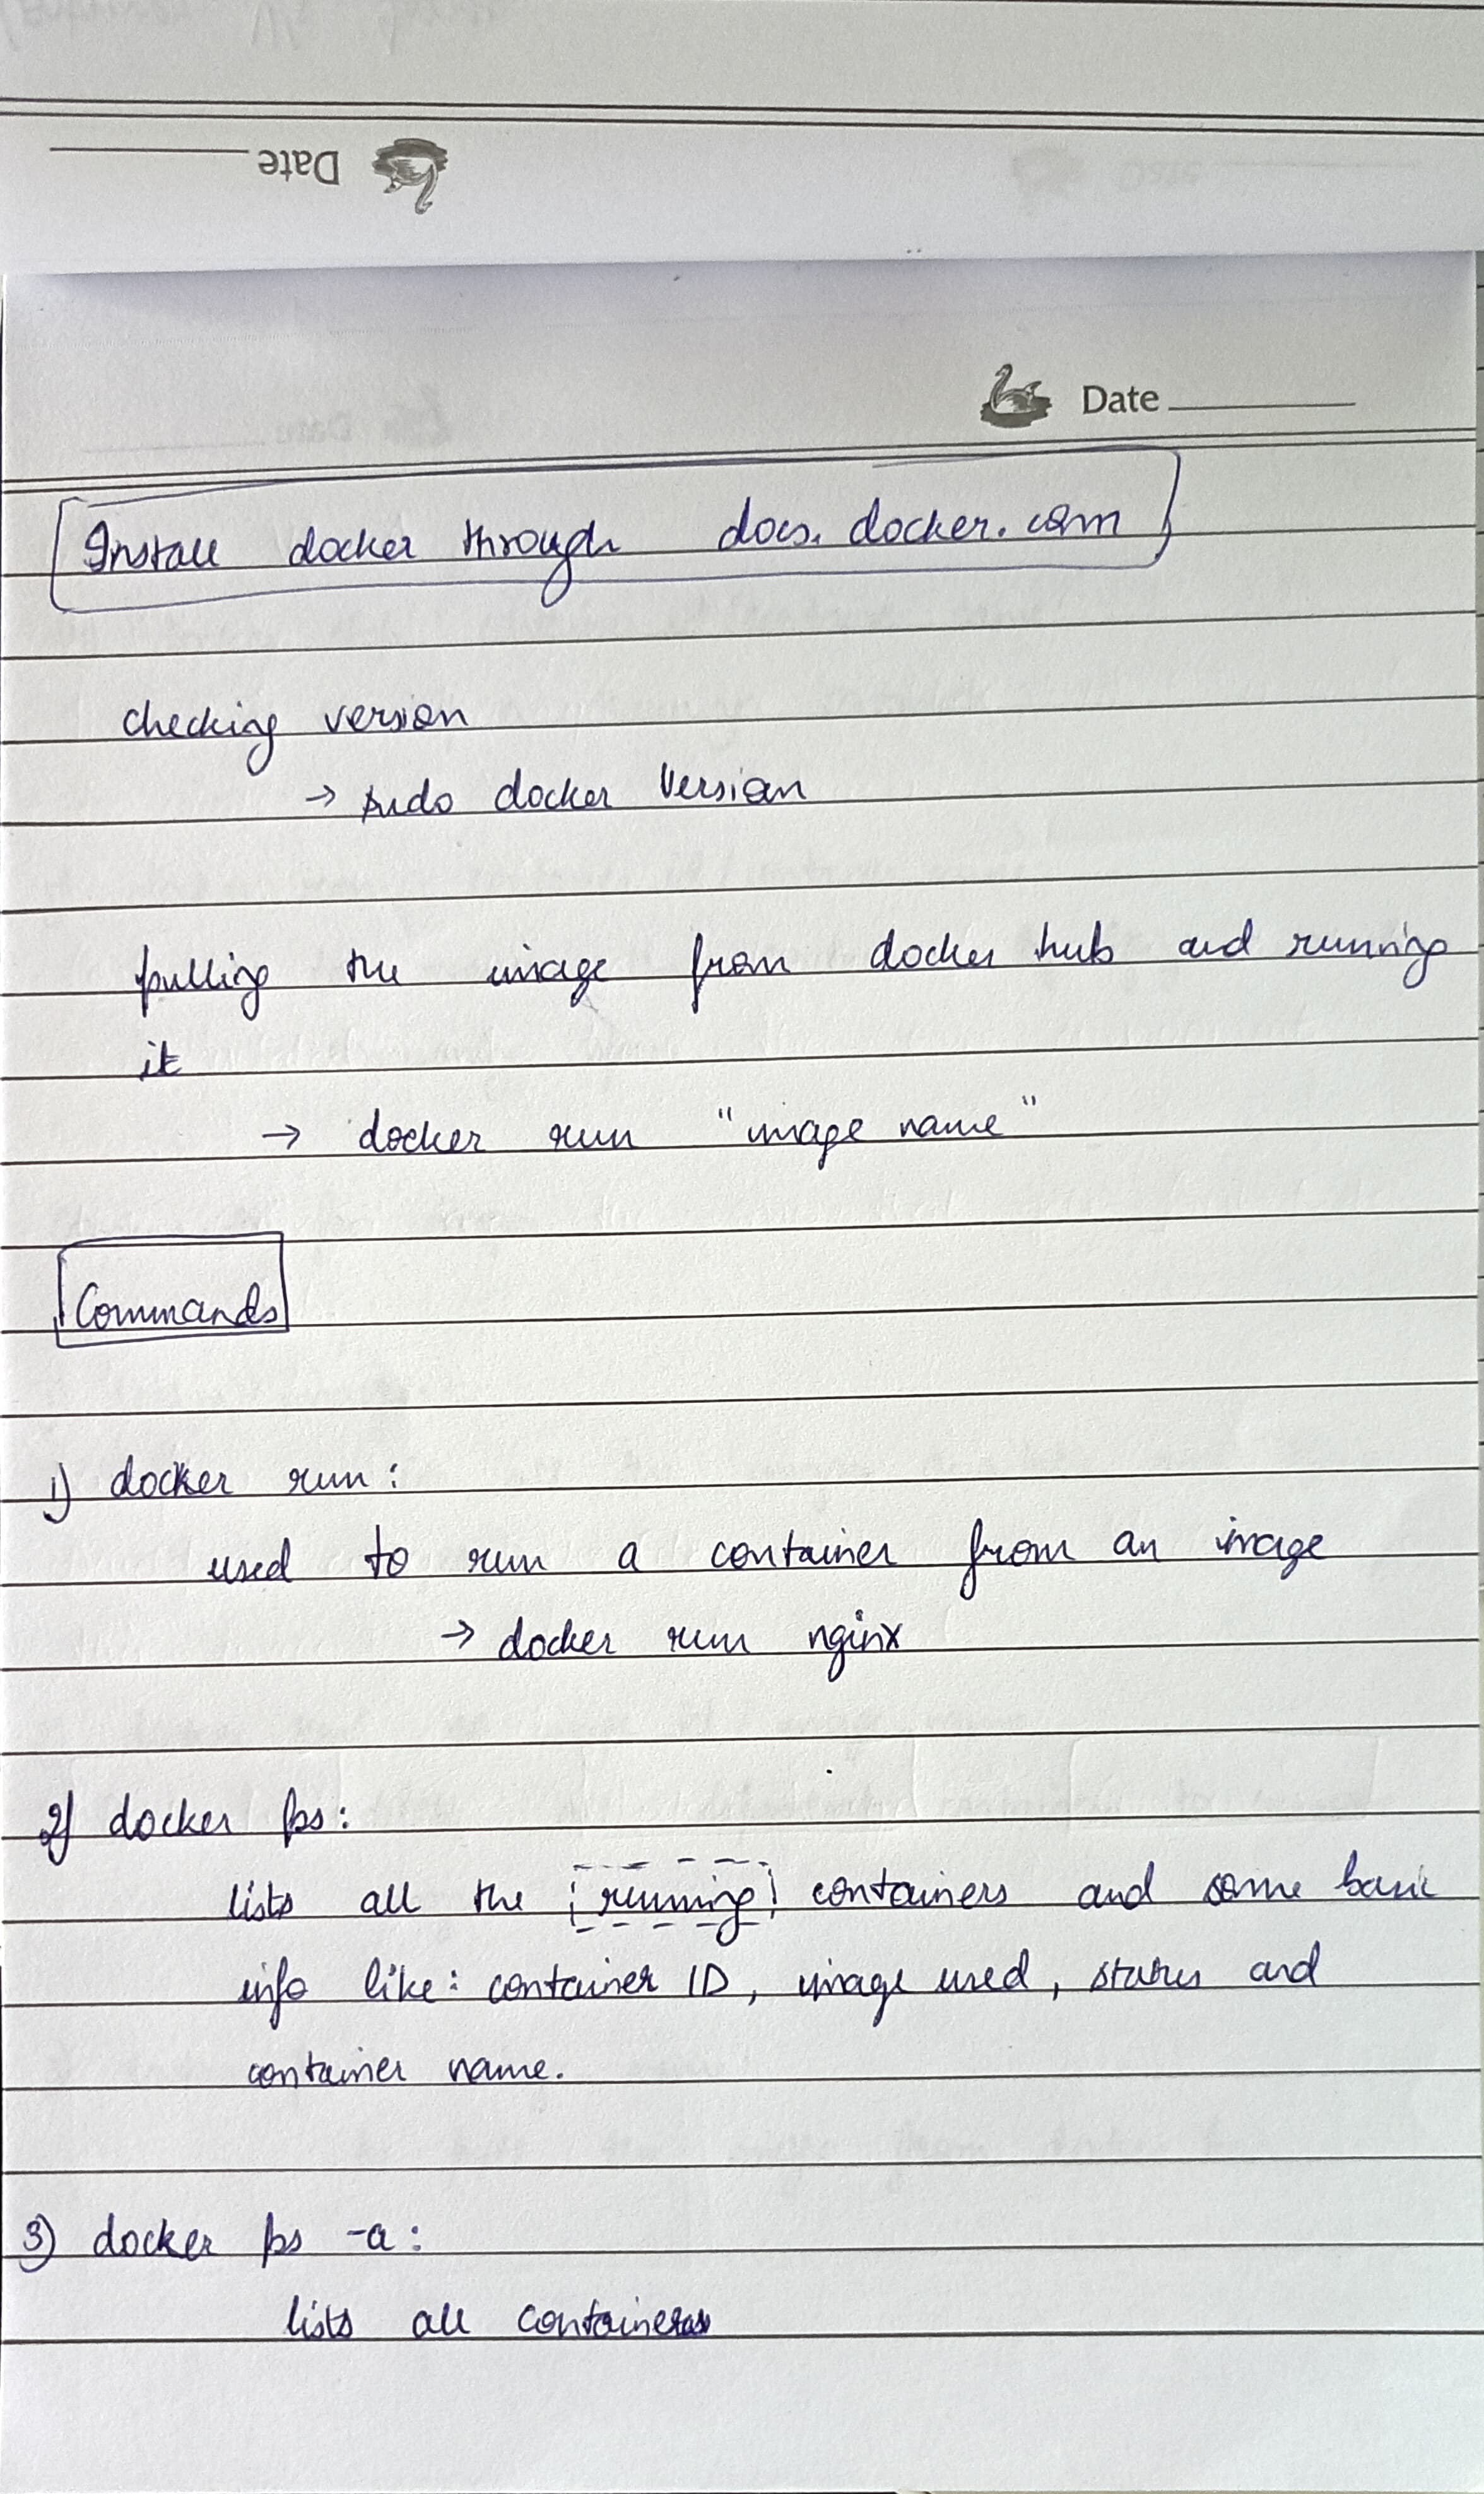 Date
Date
Install docker through docs.docker.com
checking version
→ sudo docker version
pulling the image from docker hub and running
it
→ docker run "image name"
Commands
1) docker run:
used to run a container from an image
→ docker run nginx
2) docker ps:
lists all the running containers and some basic
info like: container ID, image used, status and
container name.
3) docker ps -a:
lists all containers